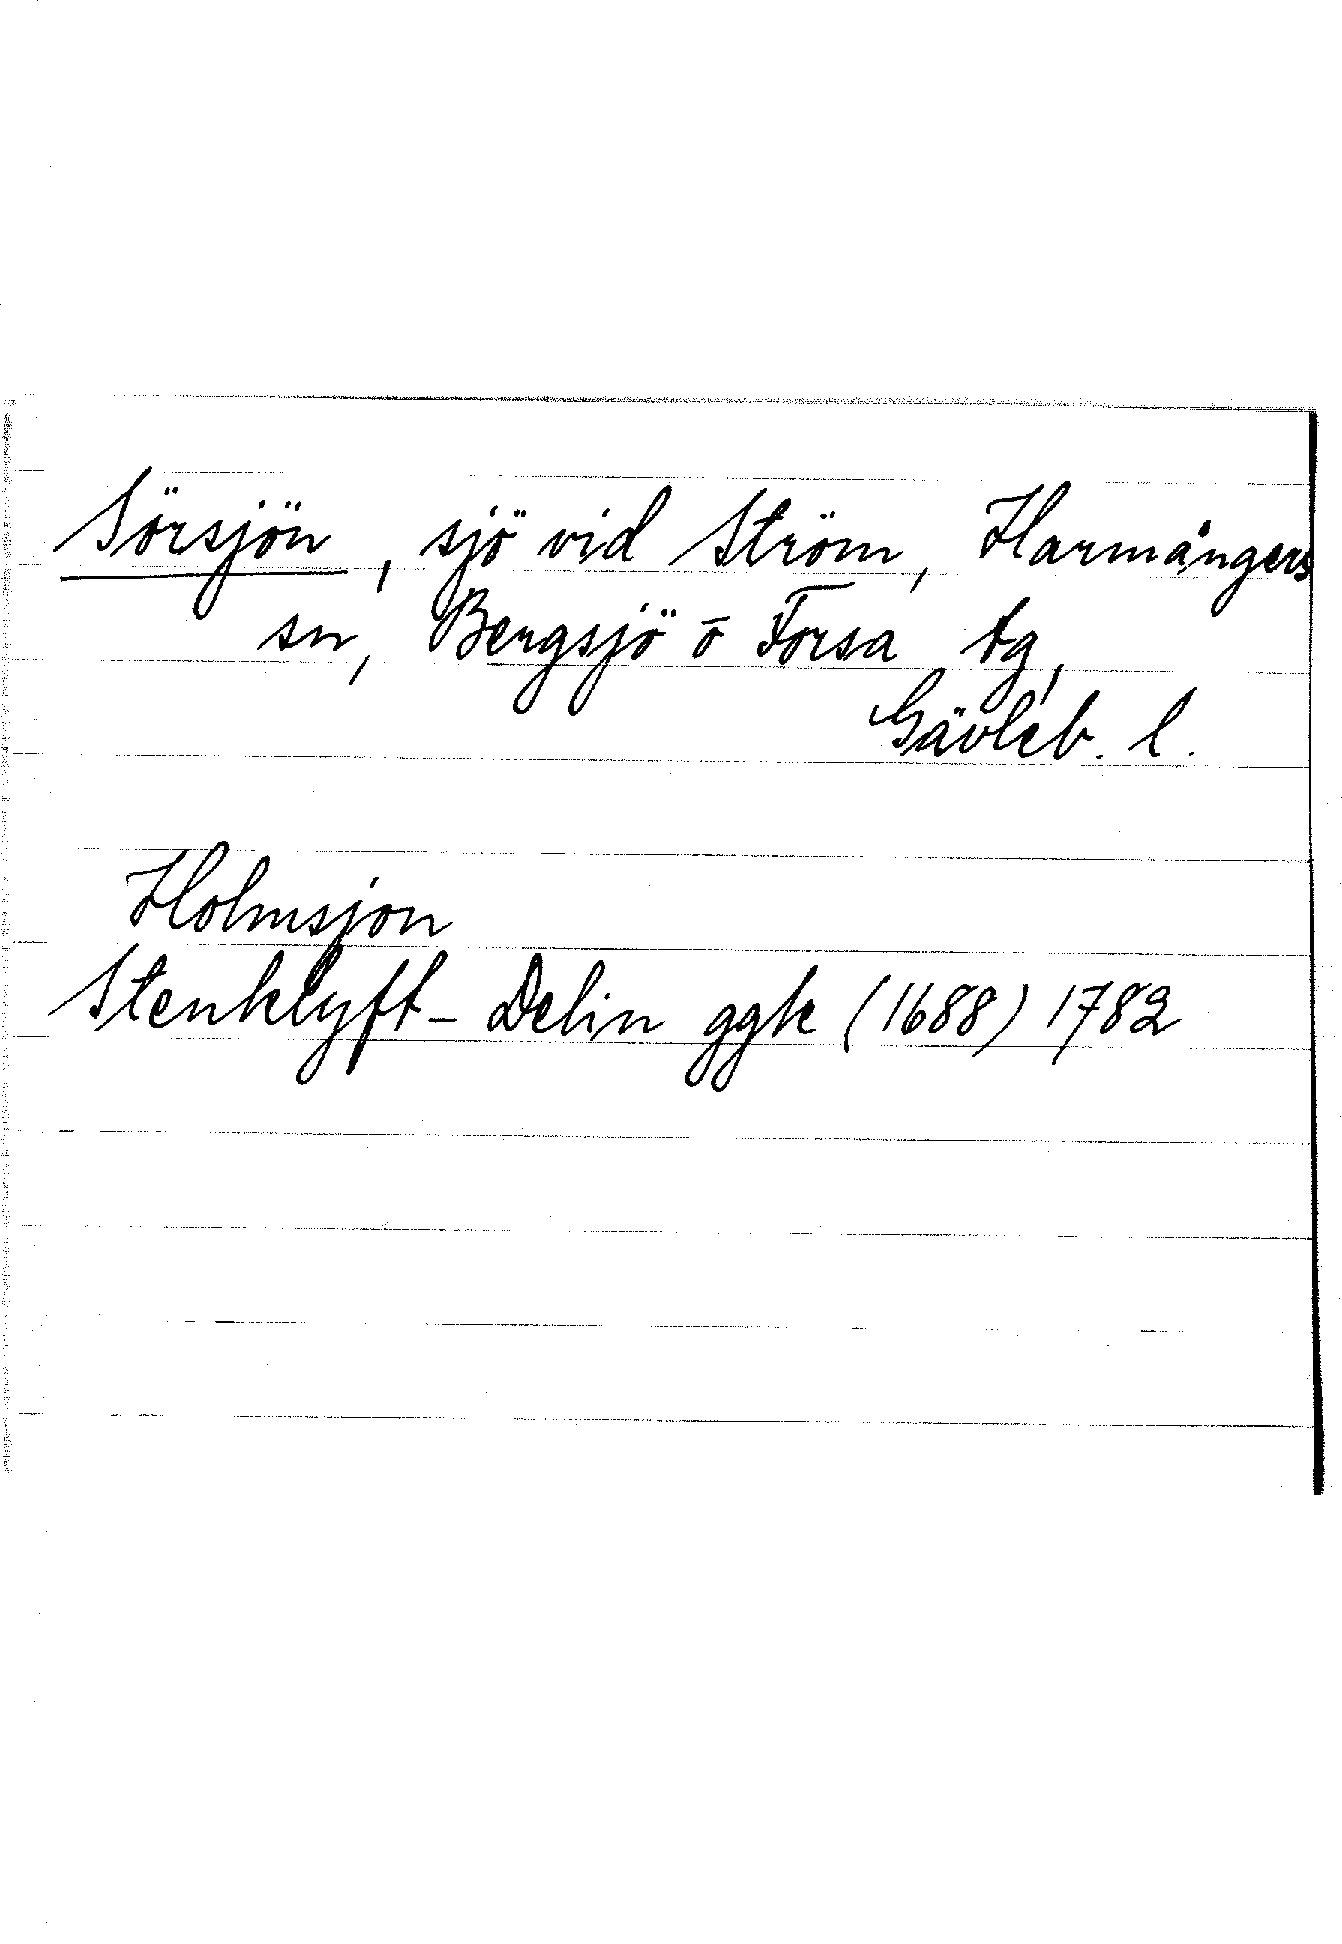 Sörsjön, sjö vid Ström, Harmångers
sn, Bergsjö o Forsa tg,
Gävleb. l.
Holmsjon
Stenklyft - Delin ggk (1688) 1782